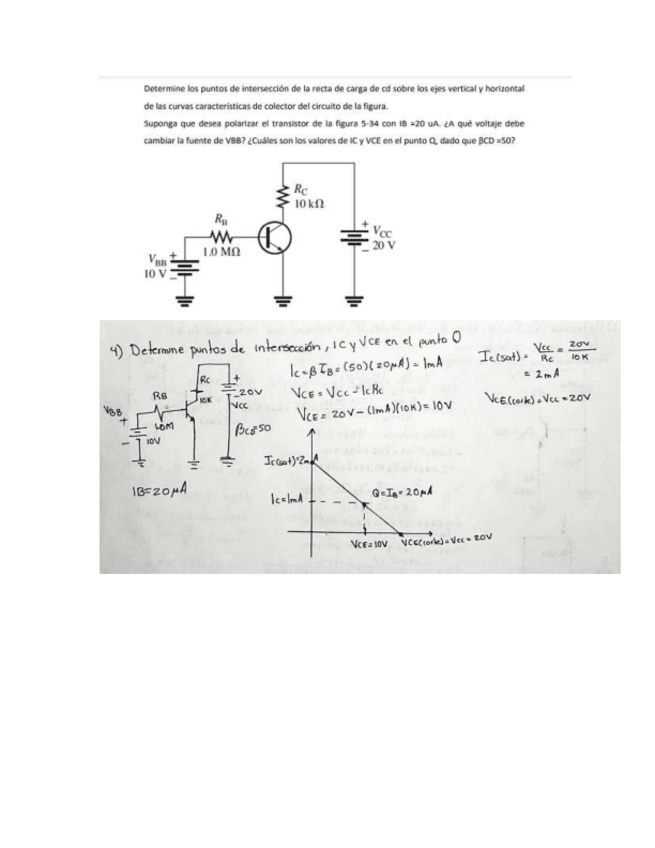 Determine los puntos de intersección de la recta de carga de cd sobre los ejes vertical y horizontal
de las curvas características de colector del circuito de la figura.
Suponga que desea polarizar el transistor de la figura 5-34 con IB =20 uA. ¿A qué voltaje debe
cambiar la fuente de VBB? ¿Cuáles son los valores de IC y VCE en el punto Q, dado que βCD =50?
RC
10 kΩ
RB
1.0 MΩ
VBB
10 V
+
–
+
VCC
20 V
–
4) Determine puntos de intersección, IC y VCE en el punto Q
Ic=βIB=(50)(20μA)=1mA
VCE=Vcc-IcRc
VCE=20V-(1mA)(10K)=10V
Ic(sat)=Vcc/Rc=20V/10K
=2mA
VCE(corte)=Vcc=20V
Rc
10K
RB
1.0M
VBB
+
-
10V
+
-20V
Vcc
βCD=50
IB=20μA
Ic(sat)=2mA
Ic=1mA
Q=IB=20μA
VCE=10V
VCE(corte)=Vcc=20V